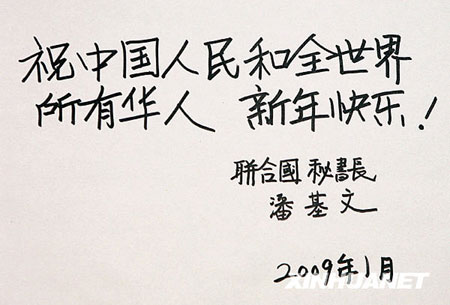 祝中国人民和全世界
所有华人 新年快乐！
聯合國秘書長
潘基文
2009年1月
XINHUANET